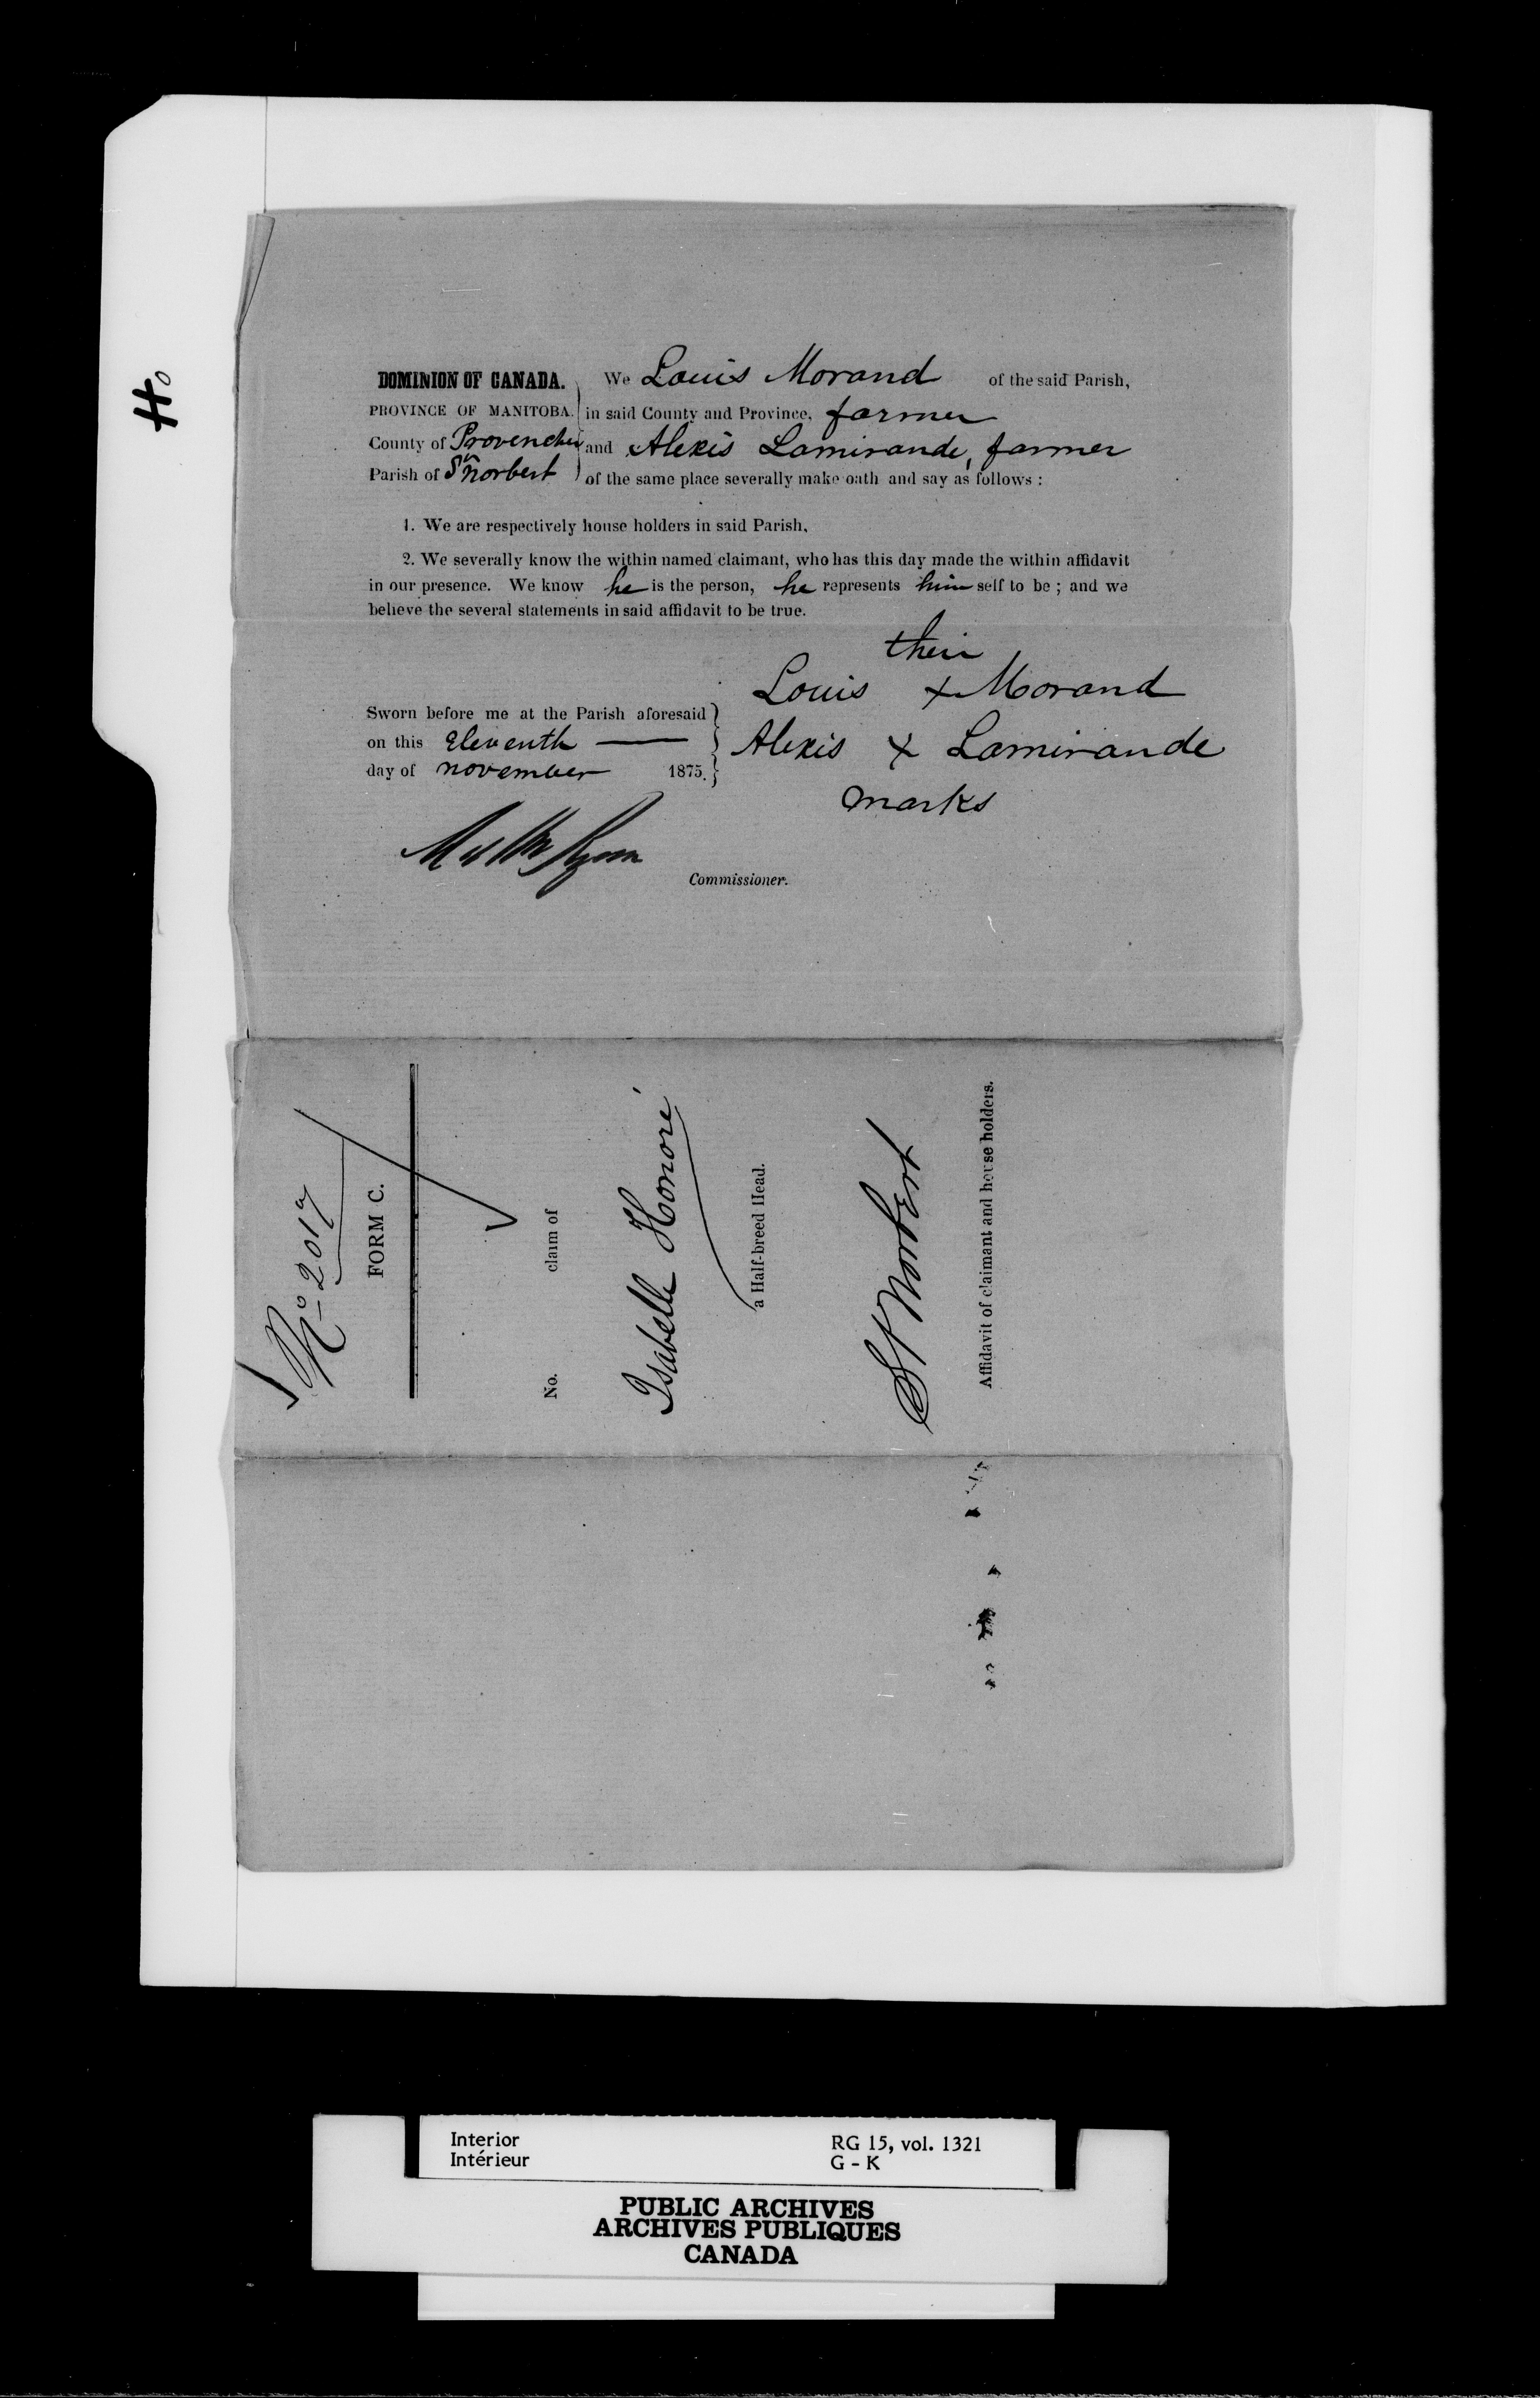 Ho
DOMINION OF CANADA.
PROVINCE OF MANITOBA.
County of Provencher
Parish of St norbert
We Louis Morand of the said Parish,
in said County and Province, farmer
and Alexis Lamirande, farmer
of the same place severally make oath and say as follows :
1. We are respectively house holders in said Parish,
2. We severally know the within named claimant, who has this day made the within affidavit
in our presence. We know he is the person, he represents him self to be ; and we
believe the several statements in said affidavit to be true.
their
Louis x Morand
Alexis x Lamirande
marks
Sworn before me at the Parish aforesaid
on this Eleventh
day of november 1875.
Commissioner.
No 2017
FORM C.
No. claim of
Isabelle Honoré
a Half-breed Head.
St Norbert
Affidavit of claimant and house holders.
Interior
Intérieur
RG 15, vol. 1321
G - K
PUBLIC ARCHIVES
ARCHIVES PUBLIQUES
CANADA